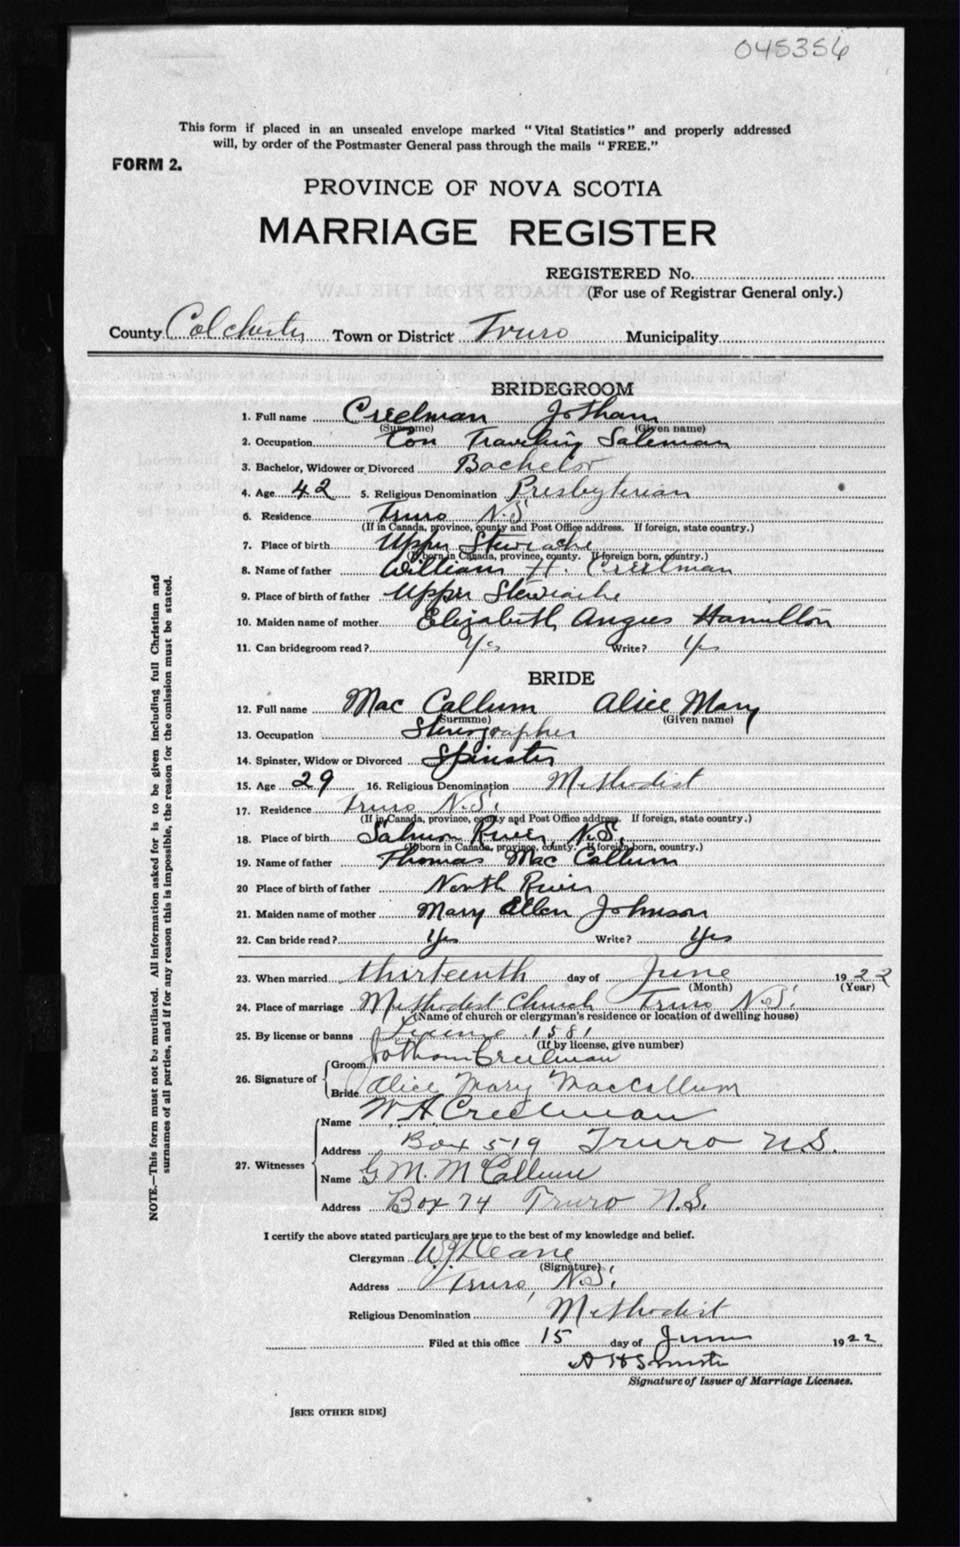 045356
This form if placed in an unsealed envelope marked "Vital Statistics" and properly addressed
will, by order of the Postmaster General pass through the mails "FREE."
FORM 2.
PROVINCE OF NOVA SCOTIA
MARRIAGE REGISTER
REGISTERED No.
(For use of Registrar General only.)
County Colchester Town or District Truro Municipality
BRIDEGROOM
1. Full name Creelman Jotham
(Surname) (Given name)
2. Occupation Traveling Salesman
3. Bachelor, Widower or Divorced Bachelor
4. Age 42 5. Religious Denomination Presbyterian
6. Residence Truro N.S
(If in Canada, province, county and Post Office address. If foreign, state country.)
7. Place of birth Upper Stewiacke
(If born in Canada, province, county. If foreign born, country.)
8. Name of father William H. Creelman
9. Place of birth of father Upper Stewiacke
10. Maiden name of mother Elizabeth Angus Hamilton
11. Can bridegroom read? Yes Write? Yes
BRIDE
12. Full name Mac Callum Alice Mary
(Surname) (Given name)
13. Occupation Stenographer
14. Spinster, Widow or Divorced Spinster
15. Age 29 16. Religious Denomination Methodist
17. Residence Truro N.S.
(If in Canada, province, county and Post Office address. If foreign, state country.)
18. Place of birth Salmon River N.S.
(If born in Canada, province, county. If foreign born, country.)
19. Name of father Thomas Mac Callum
20 Place of birth of father North River
21. Maiden name of mother Mary Ellen Johnson
22. Can bride read? Yes Write? Yes
23. When married thirteenth day of June 1922
(Month) (Year)
24. Place of marriage Methodist Church Truro N.S.
(Name of church or clergyman's residence or location of dwelling house)
25. By license or banns License 1581
(If by license, give number)
26. Signature of Groom Jotham Creelman
Bride Alice Mary MacCallum
27. Witnesses Name W. H. Creelman
Address Box 519 Truro N.S.
Name G M. McCallum
Address Box 74 Truro N.S.
I certify the above stated particulars are true to the best of my knowledge and belief.
Clergyman
(Signature)
Address Truro, N.S.
Religious Denomination Methodist
Filed at this office 15 day of June 1922
Signature of Issuer of Marriage Licenses.
[SEE OTHER SIDE]
NOTE.—This form must not be mutilated. All information asked for is to be given including full Christian and
surnames of all parties, and if for any reason this is impossible, the reason for the omission must be stated.